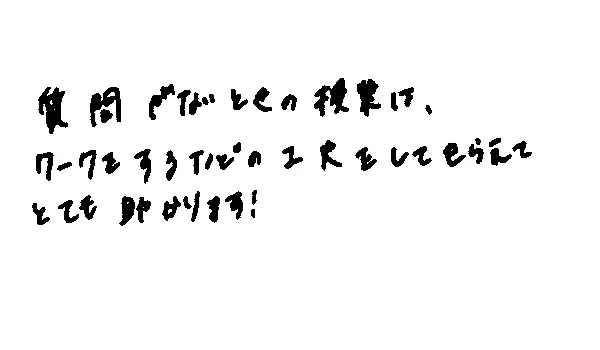 質問がないときの授業は、
ワークをするなどの工夫をしてもらえて
とても助かります!